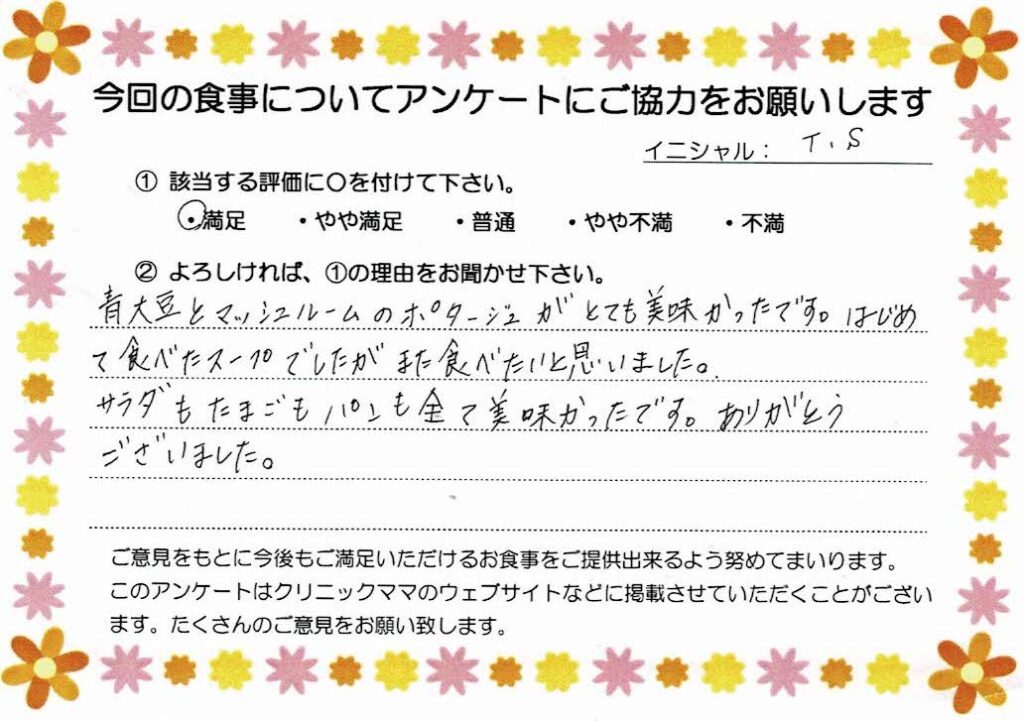 今回の食事についてアンケートにご協力をお願いします
イニシャル： T.S
① 該当する評価に〇を付けて下さい。
・満足 ・やや満足 ・普通 ・やや不満 ・不満
② よろしければ、①の理由をお聞かせ下さい。
青大豆とマッシュルームのポタージュがとても美味かったです。はじめ
て食べたスープでしたがまた食べたいと思いました。
サラダもたまごもパンも全て美味かったです。ありがとう
ございました。
ご意見をもとに今後もご満足いただけるお食事をご提供出来るよう努めてまいります。
このアンケートはクリニックママのウェブサイトなどに掲載させていただくことがござい
ます。たくさんのご意見をお願い致します。